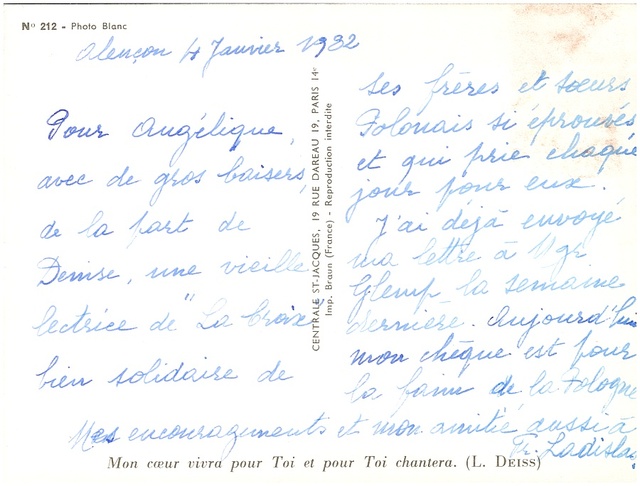 Nº 212 - Photo Blanc
Alençon 4 Janvier 1982
Pour Angélique,
avec de gros baisers,
de la part de
Denise, une vieille
lectrice de "La Croix",
bien solidaire de
ses frères et sœurs
Polonais si éprouvés
et qui prie chaque
jour pour eux.
J'ai déjà envoyé
ma lettre à Mgr
Glemp la semaine
dernière. Aujourd'hui
mon chèque est pour
la faim de la Pologne
Mes encouragements et mon amitié aussi à
Fr. Ladislas,
CENTRALE ST-JACQUES, 19 RUE DAREAU 19, PARIS 14e
Imp. Braun (France) - Reproduction interdite
Mon cœur vivra pour Toi et pour Toi chantera. (L. DEISS)